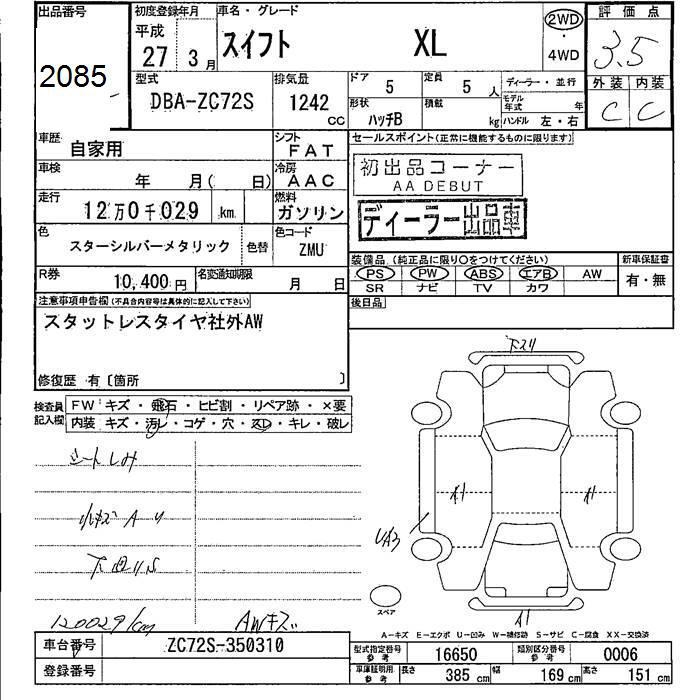 出品番号
2085
初度登録年月
平成
27 3月
車名・グレード
スイフト XL
2WD
・
4WD
評価点
3.5
型式
DBA-ZC72S
排気量
1242
cc
ドア 5
定員 5 人
形状 ハッチB
積載 kg
ディーラー・並行
モデル年式 年
ハンドル 左・右
外装 内装
C C
車歴 自家用
シフト FAT
車検 年 月( 日)
冷房 AAC
走行 12万0千029 km
燃料 ガソリン
色 スターシルバーメタリック
色替
色コード ZMU
R券 10,400円
名変通知期限 月 日
セールスポイント(正常に機能するものに限ります)
初出品コーナー
AA DEBUT
ディーラー出品車
装備品(純正品に限り○をつけてください)
PS PW ABS エアB AW
SR ナビ TV カワ
新車保証書
有・無
後日品
注意事項申告欄(不具合内容等は具体的に記入して下さい)
スタットレスタイヤ社外AW
修復歴 有〔箇所 〕
検査員
記入欄
FW キズ・飛石・ヒビ割・リペア跡・×要
内装 キズ・汚レ・コゲ・穴・スレ・キレ・破レ
シートしみ
小キズ A U
下回りS
120029/km
AWキズ
下スリ
A1
A1
UA3
A1
スペア
A-キズ E-エクボ U-凹み W-補修跡 S-サビ C-腐食 XX-交換済
車台番号 ZC72S-350310
登録番号
型式指定番号 参考 16650
類別区分番号 参考 0006
車庫証明用 参考 長さ 385 cm 幅 169 cm 高さ 151 cm